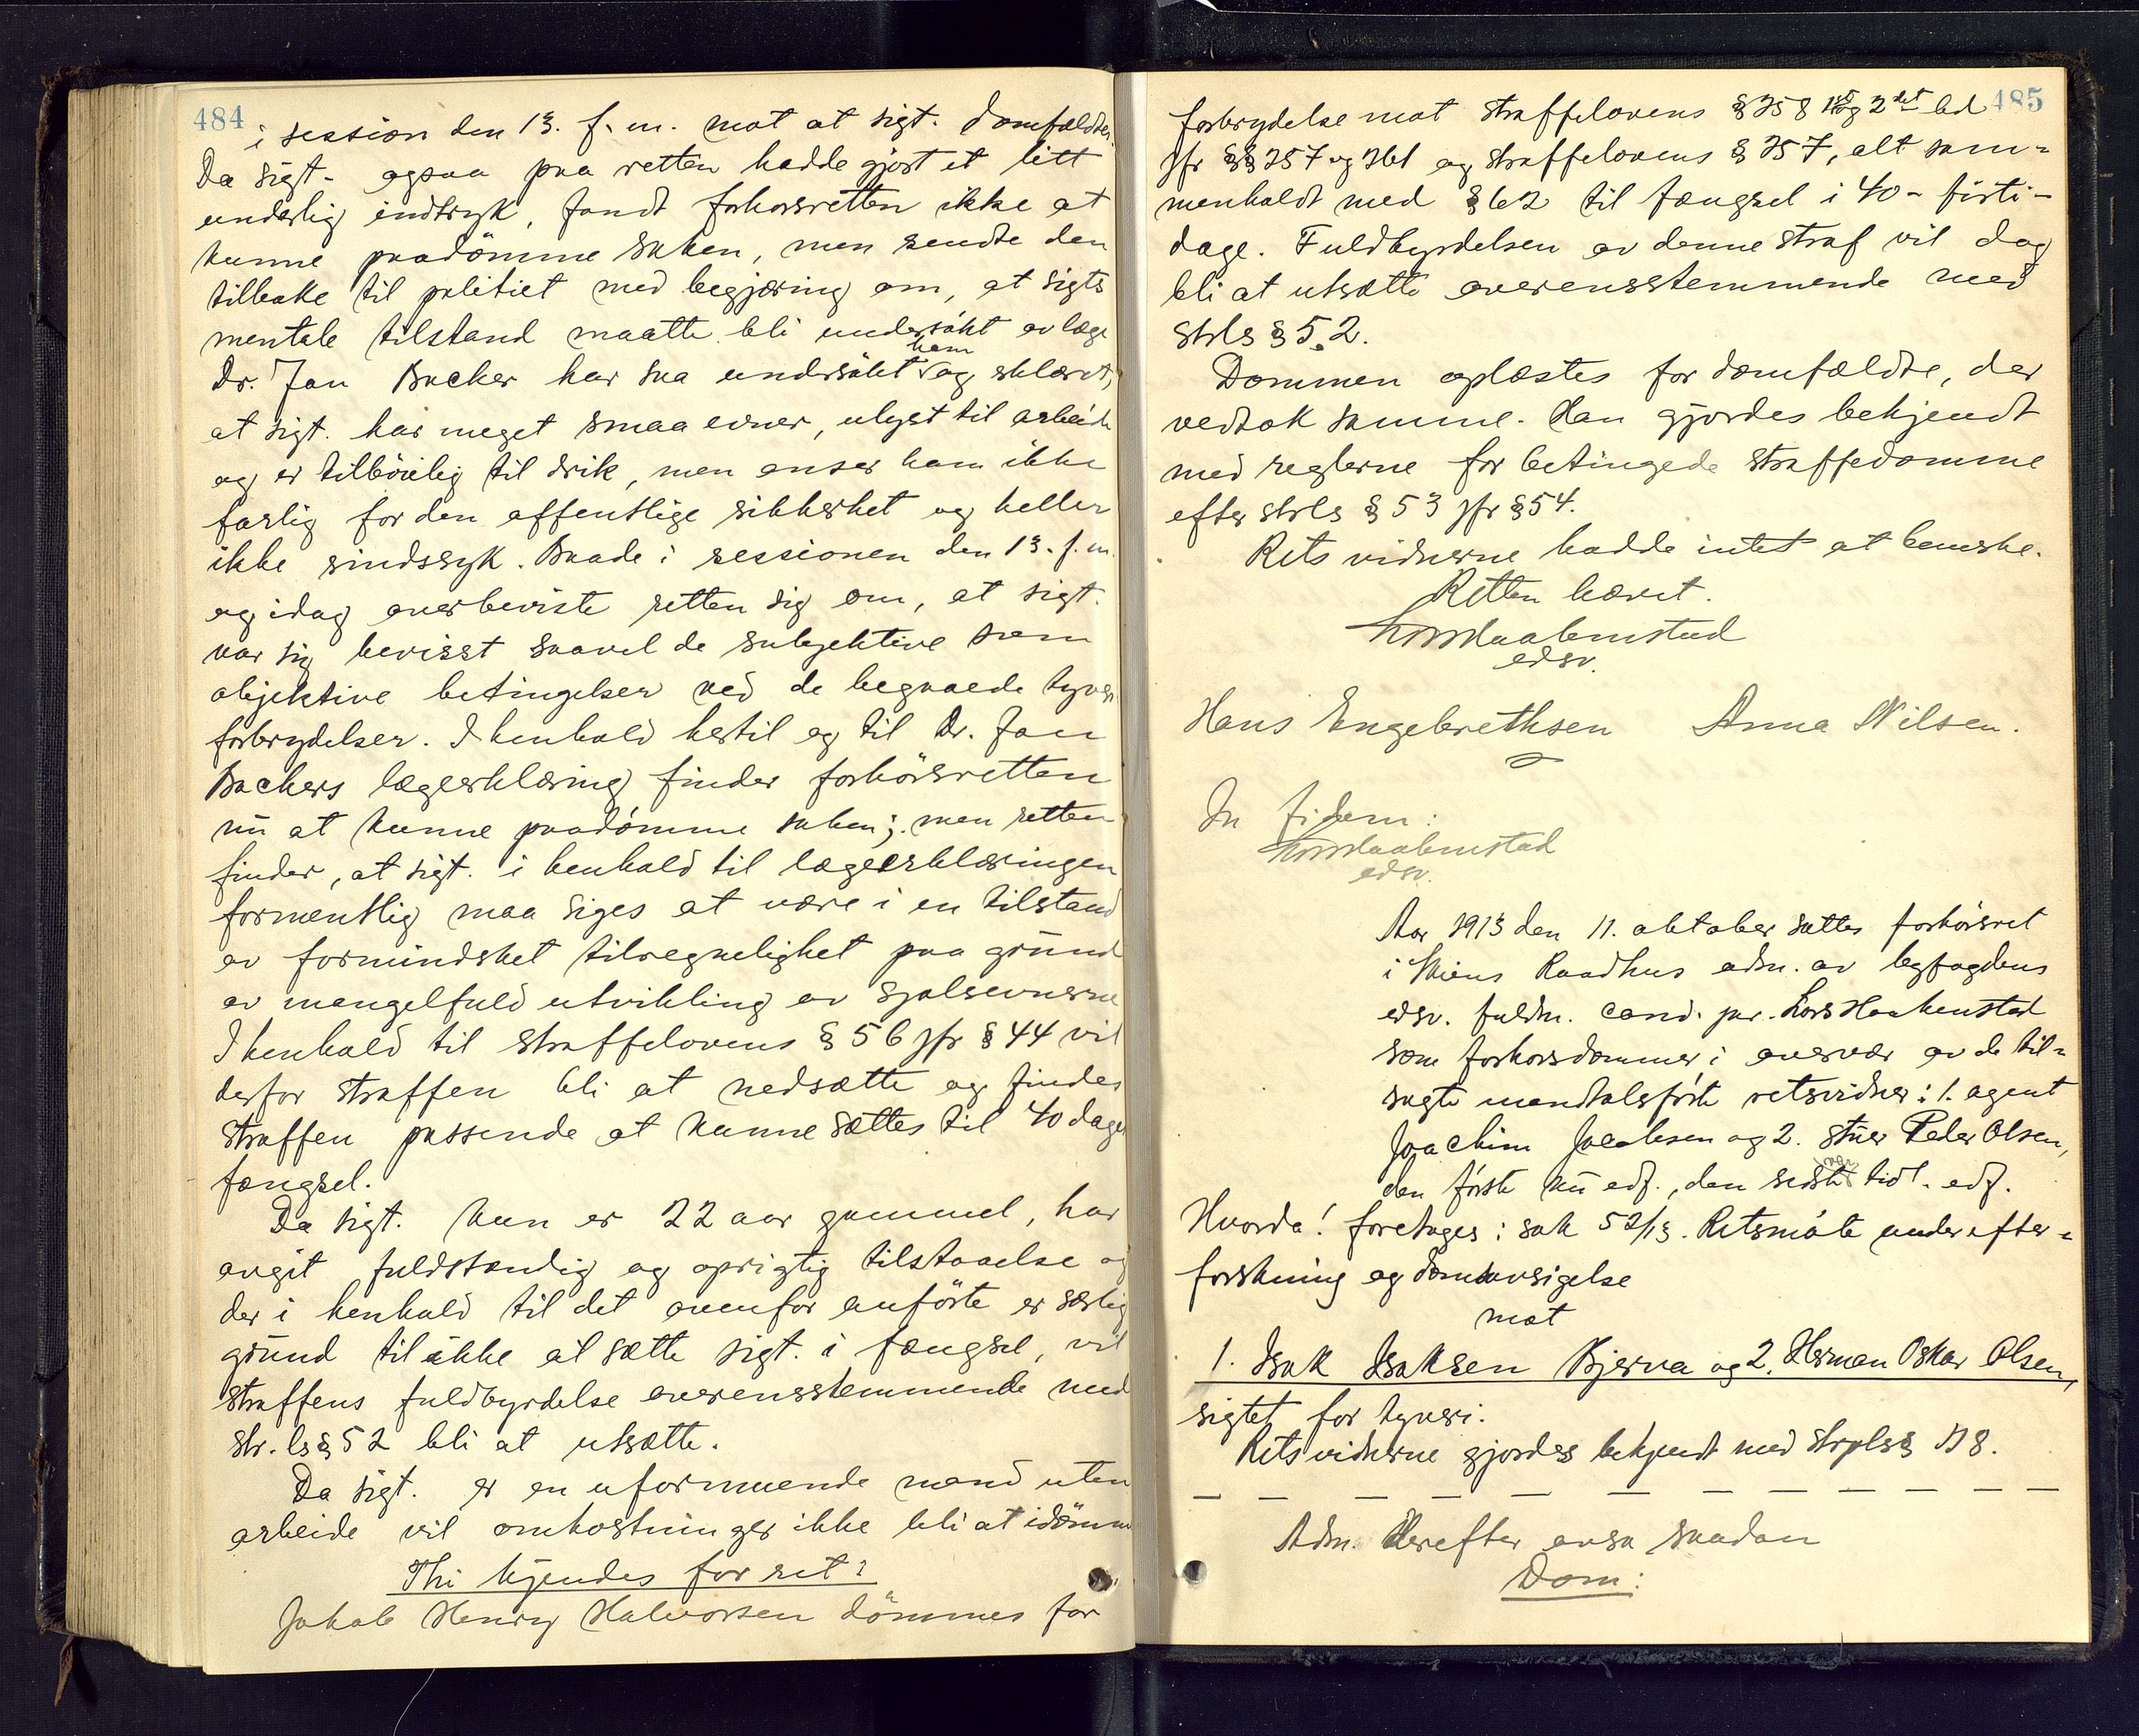 484
i session den 13. f. m. mot at sigt. domfældtes.
Da sigt. ogsaa paa retten hadde gjort et litt
underlig indtryk, fandt forhørsretten ikke at
kunne paadömme saken, men sendte den
tilbake til politiet med begjæring om, at sigts
mentale tilstand maatte bli undersökt av læge
Dr. Jan Backer har saa undersökt ham og erklæret,
at sigt. har meget smaa evner, ulyst til arbeide
og er tilböielig til drik, men anser ham ikke
farlig for den offentlige sikkerhet og heller
ikke sindssyk. Baade i sessionen den 13. f. m.
og idag overbeviste retten sig om, at sigt.
var sig bevisst saavel de subjektive som
objektive betingelser ved de begaaede tyveri
forbrydelser. I henhold hertil og til Dr. Jan
Backers lægeerklæring finder forhörsretten
nu at kunne paadömme saken; men retten
finder, at sigt. i henhold til lægeerklæringen
formentlig maa siges at være i en tilstand
av formindsket tilregnelighet paa grund
av mangelfuld utvikling av sjælsevnerne
I henhold til straffelovens § 56 jfr § 44 vil
derfor straffen bli at nedsætte og findes
straffen passende at kunne sættes til 40 dages
fængsel.
Da sigt. kun er 22 aar gammel, har
avgit fuldstændig og oprigtig tilstaaelse og
der i henhold til det ovenfor anförte er særlig
grund til ikke at sætte sigt. i fængsel, vil
straffens fuldbyrdelse overensstemmende med
str. ls § 52 bli at utsætte.
Da sigt. er en uformuende mand uten
arbeide vil omkostninger ikke bli at idömme
Thi kjendes for ret:
Jakob Henry Halvorsen dömmes for
485
forbrydelse mot straffelovens § 258 1ste og 2det led
jfr §§ 257 og 261 og straffelovens § 257, alt sam-
menholdt med § 62 til fængsel i 40 - firti -
dage. Fuldbyrdelsen av denne straf vil dog
bli at utsætte overensstemmende med
strls § 52.
Dommen oplæstes for domfældte, der
vedtok samme. Han gjordes bekjendt
med reglerne for betingede straffedomme
efter strls § 53 jfr § 54.
Retsvidnerne hadde intet at bemerke.
Retten hævet.
Lars Haakenstad
edsv.
Hans Engebrethsen Anna Nilsen.
In fidem:
Lars Haakenstad
edsv.
Aar 1913 den 11. oktober sattes forhörsret
i Skiens Raadhus adm. av byfogdens
edsv. fuldm. cand. jur. Lars Haakenstad
som forhörsdommer i overvær av de til-
sagte mandtalsförte retsvidner: 1. agent
Joachim Jacobsen og 2. stuer Peder Olsen,
den förste nu edf., den sidste var tidl. edf.
Hvorda! foretages: sak 52/13. Retsmöte under efter-
forskning og domsavsigelse
mot
1. Isak Isaksen Bjerva og 2. Herman Oskar Olsen,
sigtet for tyveri.
Retsvidnerne gjordes bekjendt med Strpls § 118.
Adm. Derefter avsa saadan
Dom: